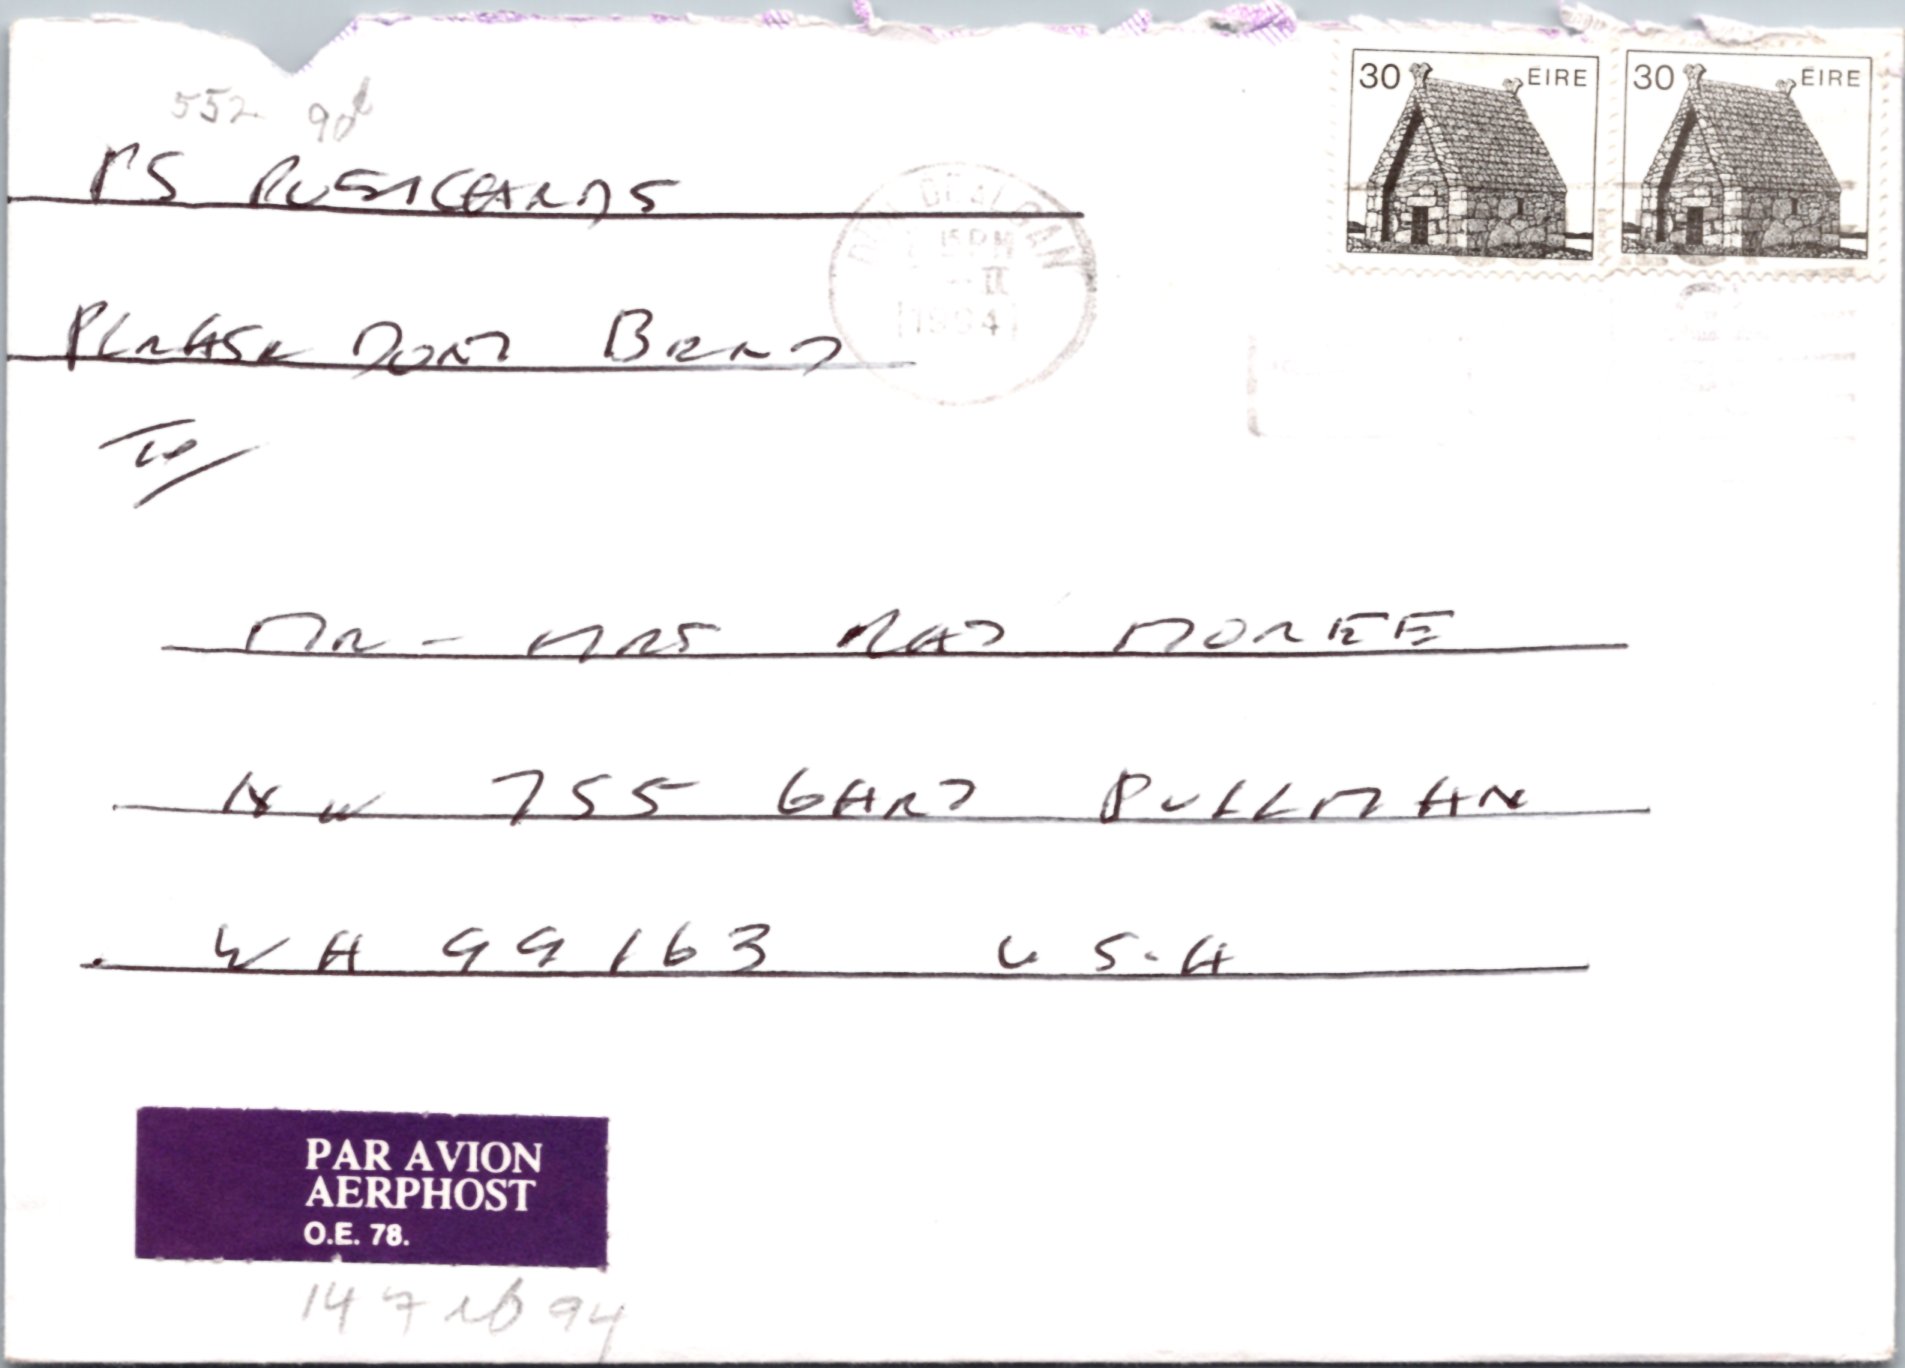 552 90d
PS POSTCARDS
30 EIRE 30 EIRE
DEALGAN
15 PM
II
1994
PLEASE DONT BEND
To/
MR - MRS MOREE
NW 755 PULLMAN
WA 99163 U.S.A
PAR AVION
AERPHOST
O.E. 78.
14 Feb 94